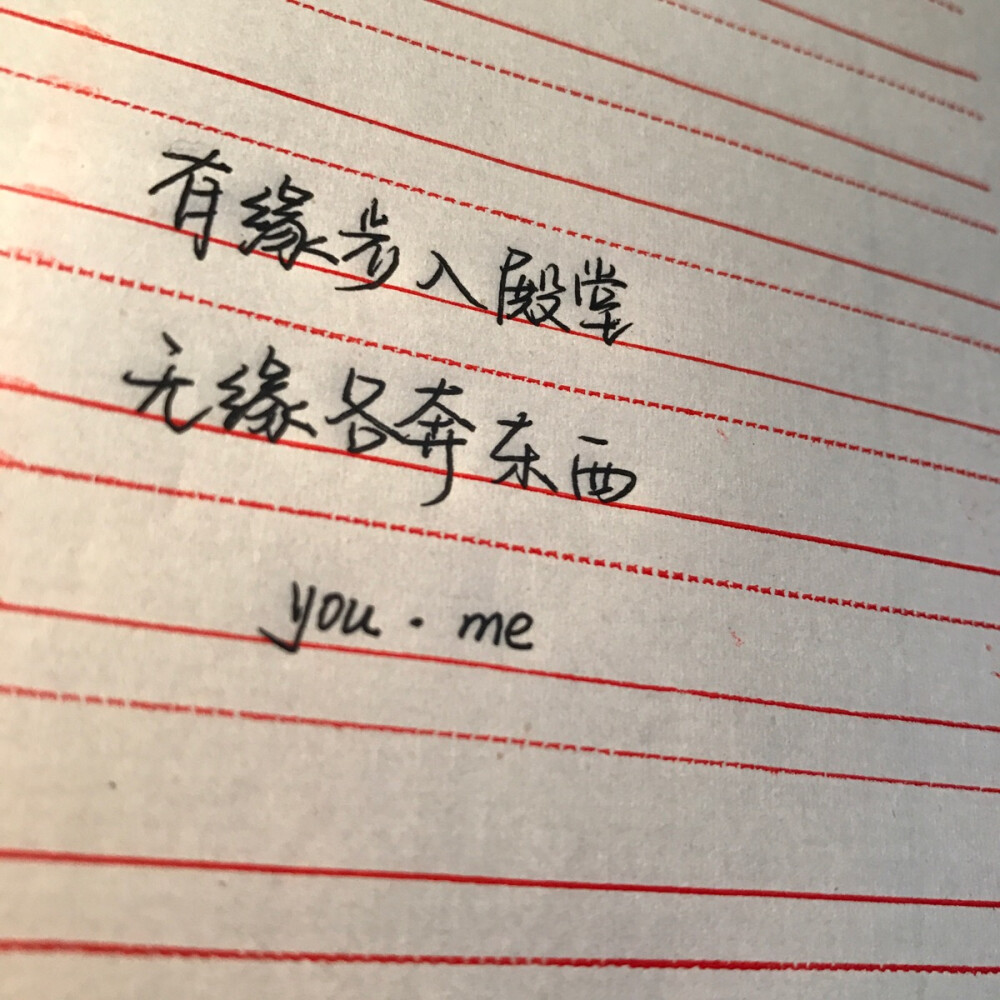 有缘步入殿堂
无缘各奔东西
you · me